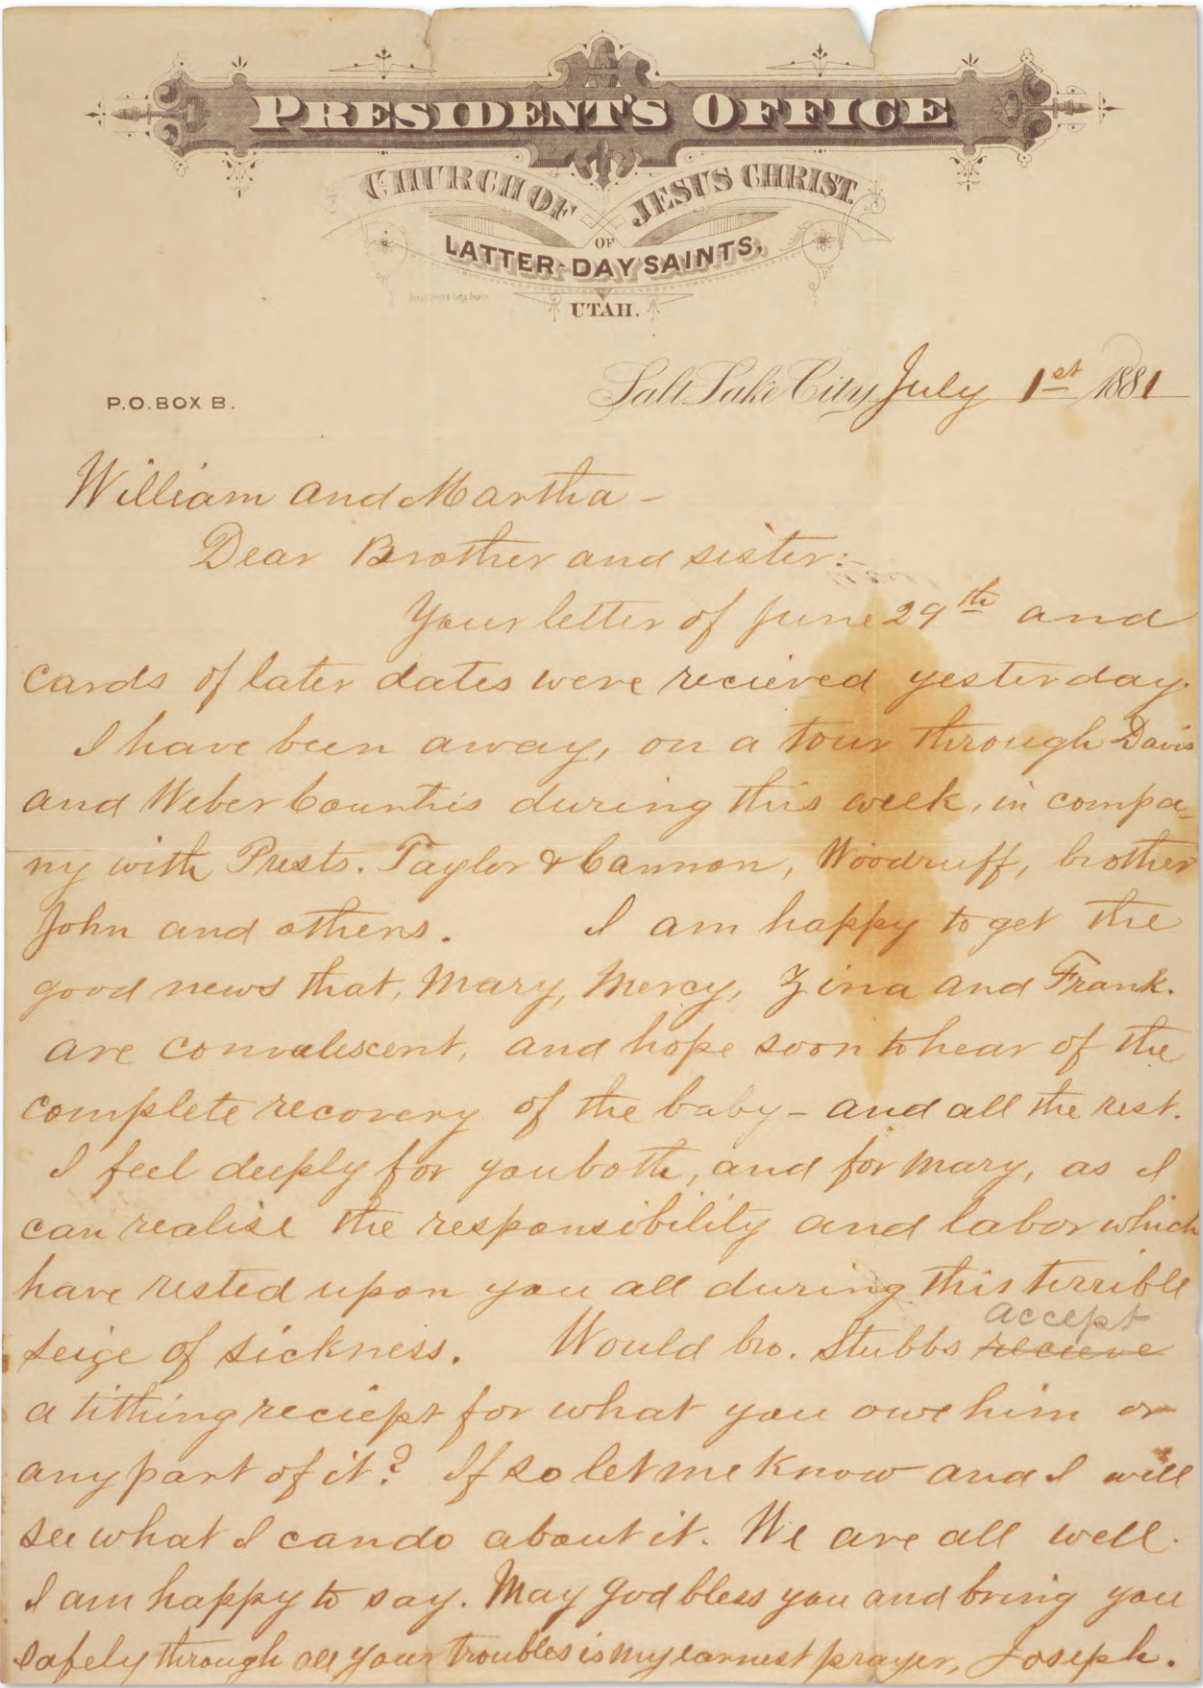 PRESIDENT'S OFFICE
CHURCH OF JESUS CHRIST
OF
LATTER-DAY SAINTS,
UTAH.
P.O. BOX B.
Salt Lake City July 1st 1881
William and Martha –
Dear Brother and sister:
Your letter of June 29th and
cards of later dates were recieved yesterday.
I have been away, on a tour through Davis
and Weber Counties during this week, in compa-
ny with Prests. Taylor & Cannon, Woodruff, brother
John and others. I am happy to get the
good news that, Mary, Mercy, Zina and Frank.
are convalescent, and hope soon to hear of the
complete recovery of the baby – and all the rest.
I feel deeply for you both, and for Mary, as I
can realise the responsibility and labor which
have rested upon you all during this terrible
accept
seige of sickness. Would bro. Stubbs recieve
a tithing reciept for what you owe him or
any part of it? If so let me know and I will
see what I can do about it. We are all well.
I am happy to say. May God bless you and bring you
safely through all your troubles is my earnest prayer, Joseph.